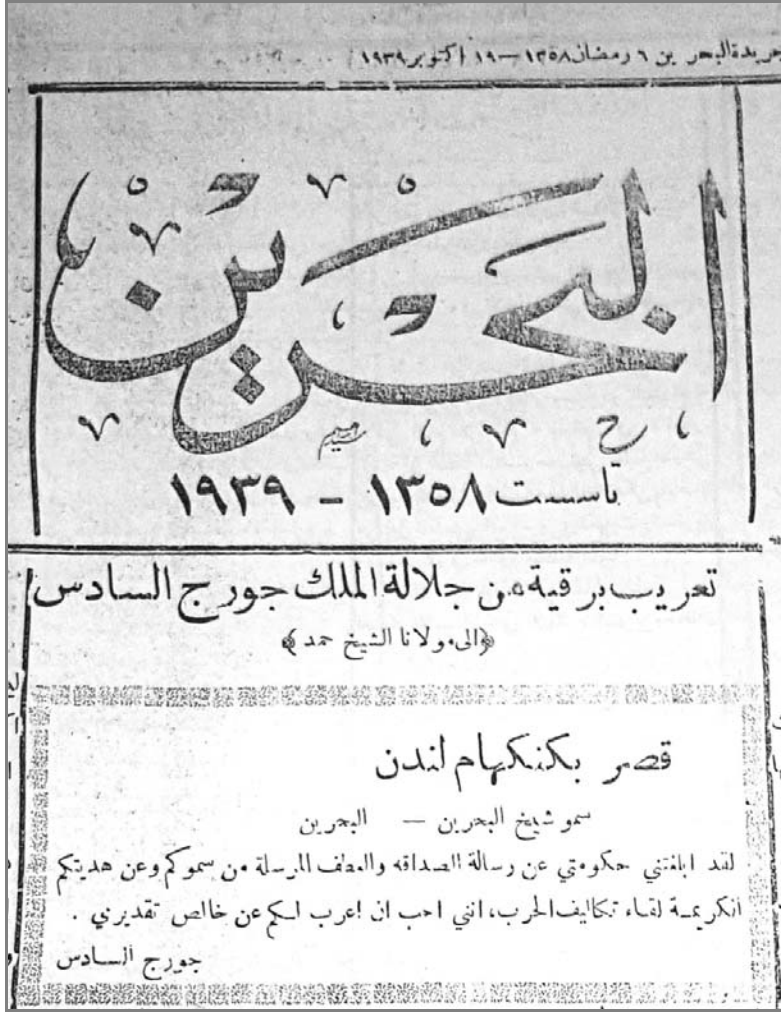 جريدة البحرين ٦ رمضان ١٣٥٨ — ١٩ اكتوبر ١٩٣٩
البحرين
تاسست ١٣٥٨ - ١٩٣٩
تعريب برقية من جلالة الملك جورج السادس
﴿الى مولانا الشيخ حمد﴾
قصر بكنكهام لندن
سمو شيخ البحرين — البحرين
لقد ابلغتني حكومتي عن رسالة الصداقه والعطف المرسلة من سموكم وعن هديتكم
الكريمة لقاء تكاليف الحرب، انني احب ان اعرب لكم عن خالص تقديري .
جورج السادس